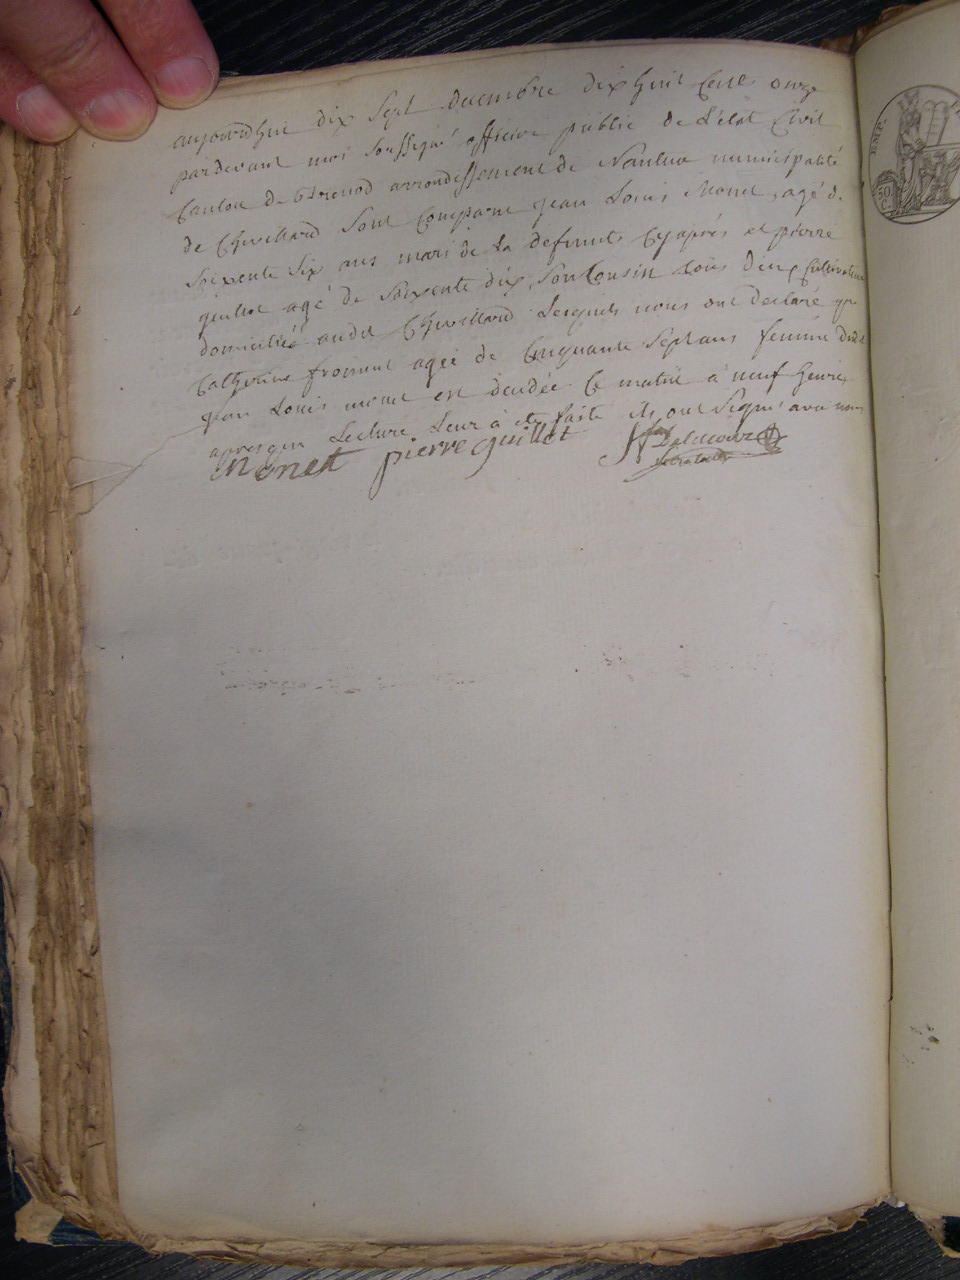 aujourdhui dix Sept decembre dix huit Cent onze
pardevant moi Soussigné officier public de L'état Civil
Canton de Brenod arrondissement de Nantua municipalité
de Chevillard Sont Comparu jean Louis Monet, agé de
Soixente Six ans mari de la defunte Cy après et pierre
guillot agé de Soixente dix, Son Cousin tous deux Cultivateurs
domiciliés audit Chevillard Lesquels nous ont declaré que
Catherine froment agée de Cinquante Sept ans femme dudit
jean Louis monet est décédée Ce matin à neuf heures
apres que Lecture Leur à été faite ils ont Signé avec nous
monet pierre guillot
EMP.
50 C.